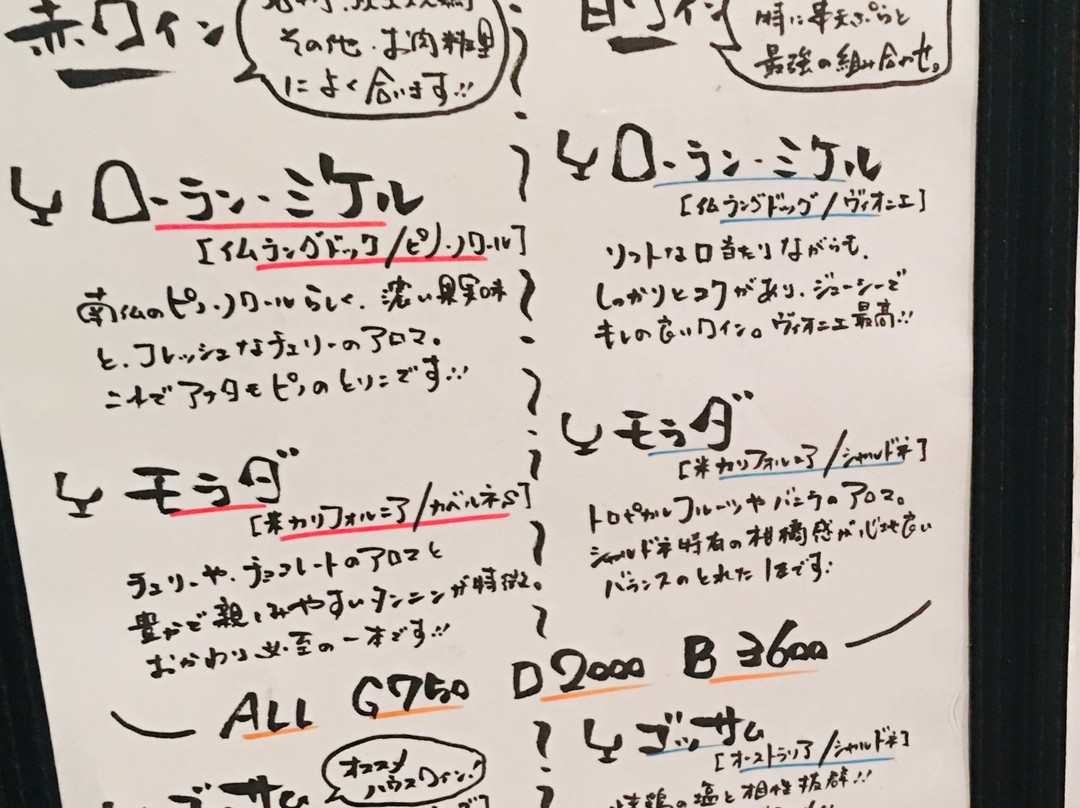 赤ワイン
その他、お肉料理
によく合います!!
ローラン・ミケル
[仏ラングドック/ピノ・ノワール]
南仏のピノ・ノワールらしく、濃い果実味
と、フレッシュなチェリーのアロマ。
これでアナタもピノのとりこです!!
モラダ
[米カリフォルニア/カベルネS]
チェリーや、チョコレートのアロマと
豊かで親しみやすいタンニンが特徴。
おかわり必至の一本です!!
白ワイン
特に半天ぷらと
最強の組み合わせ。
ローラン・ミケル
[仏ラングドッグ/ヴィオニエ]
ソフトな口当たりながらも、
しっかりとコクがあり、ジューシーで
キレの良いワイン。ヴィオニエ最高!!
モラダ
[米カリフォルニア/シャルドネ]
トロピカルフルーツやバニラのアロマ。
シャルドネ特有の柑橘感が心地良い
バランスのとれた1本です!
ALL G750 D2000 B3600
オススメ
ハウスワイン!
ゴッサム
ゴッサム
[オーストラリア/シャルドネ]
焼鶏の塩と相性抜群!!